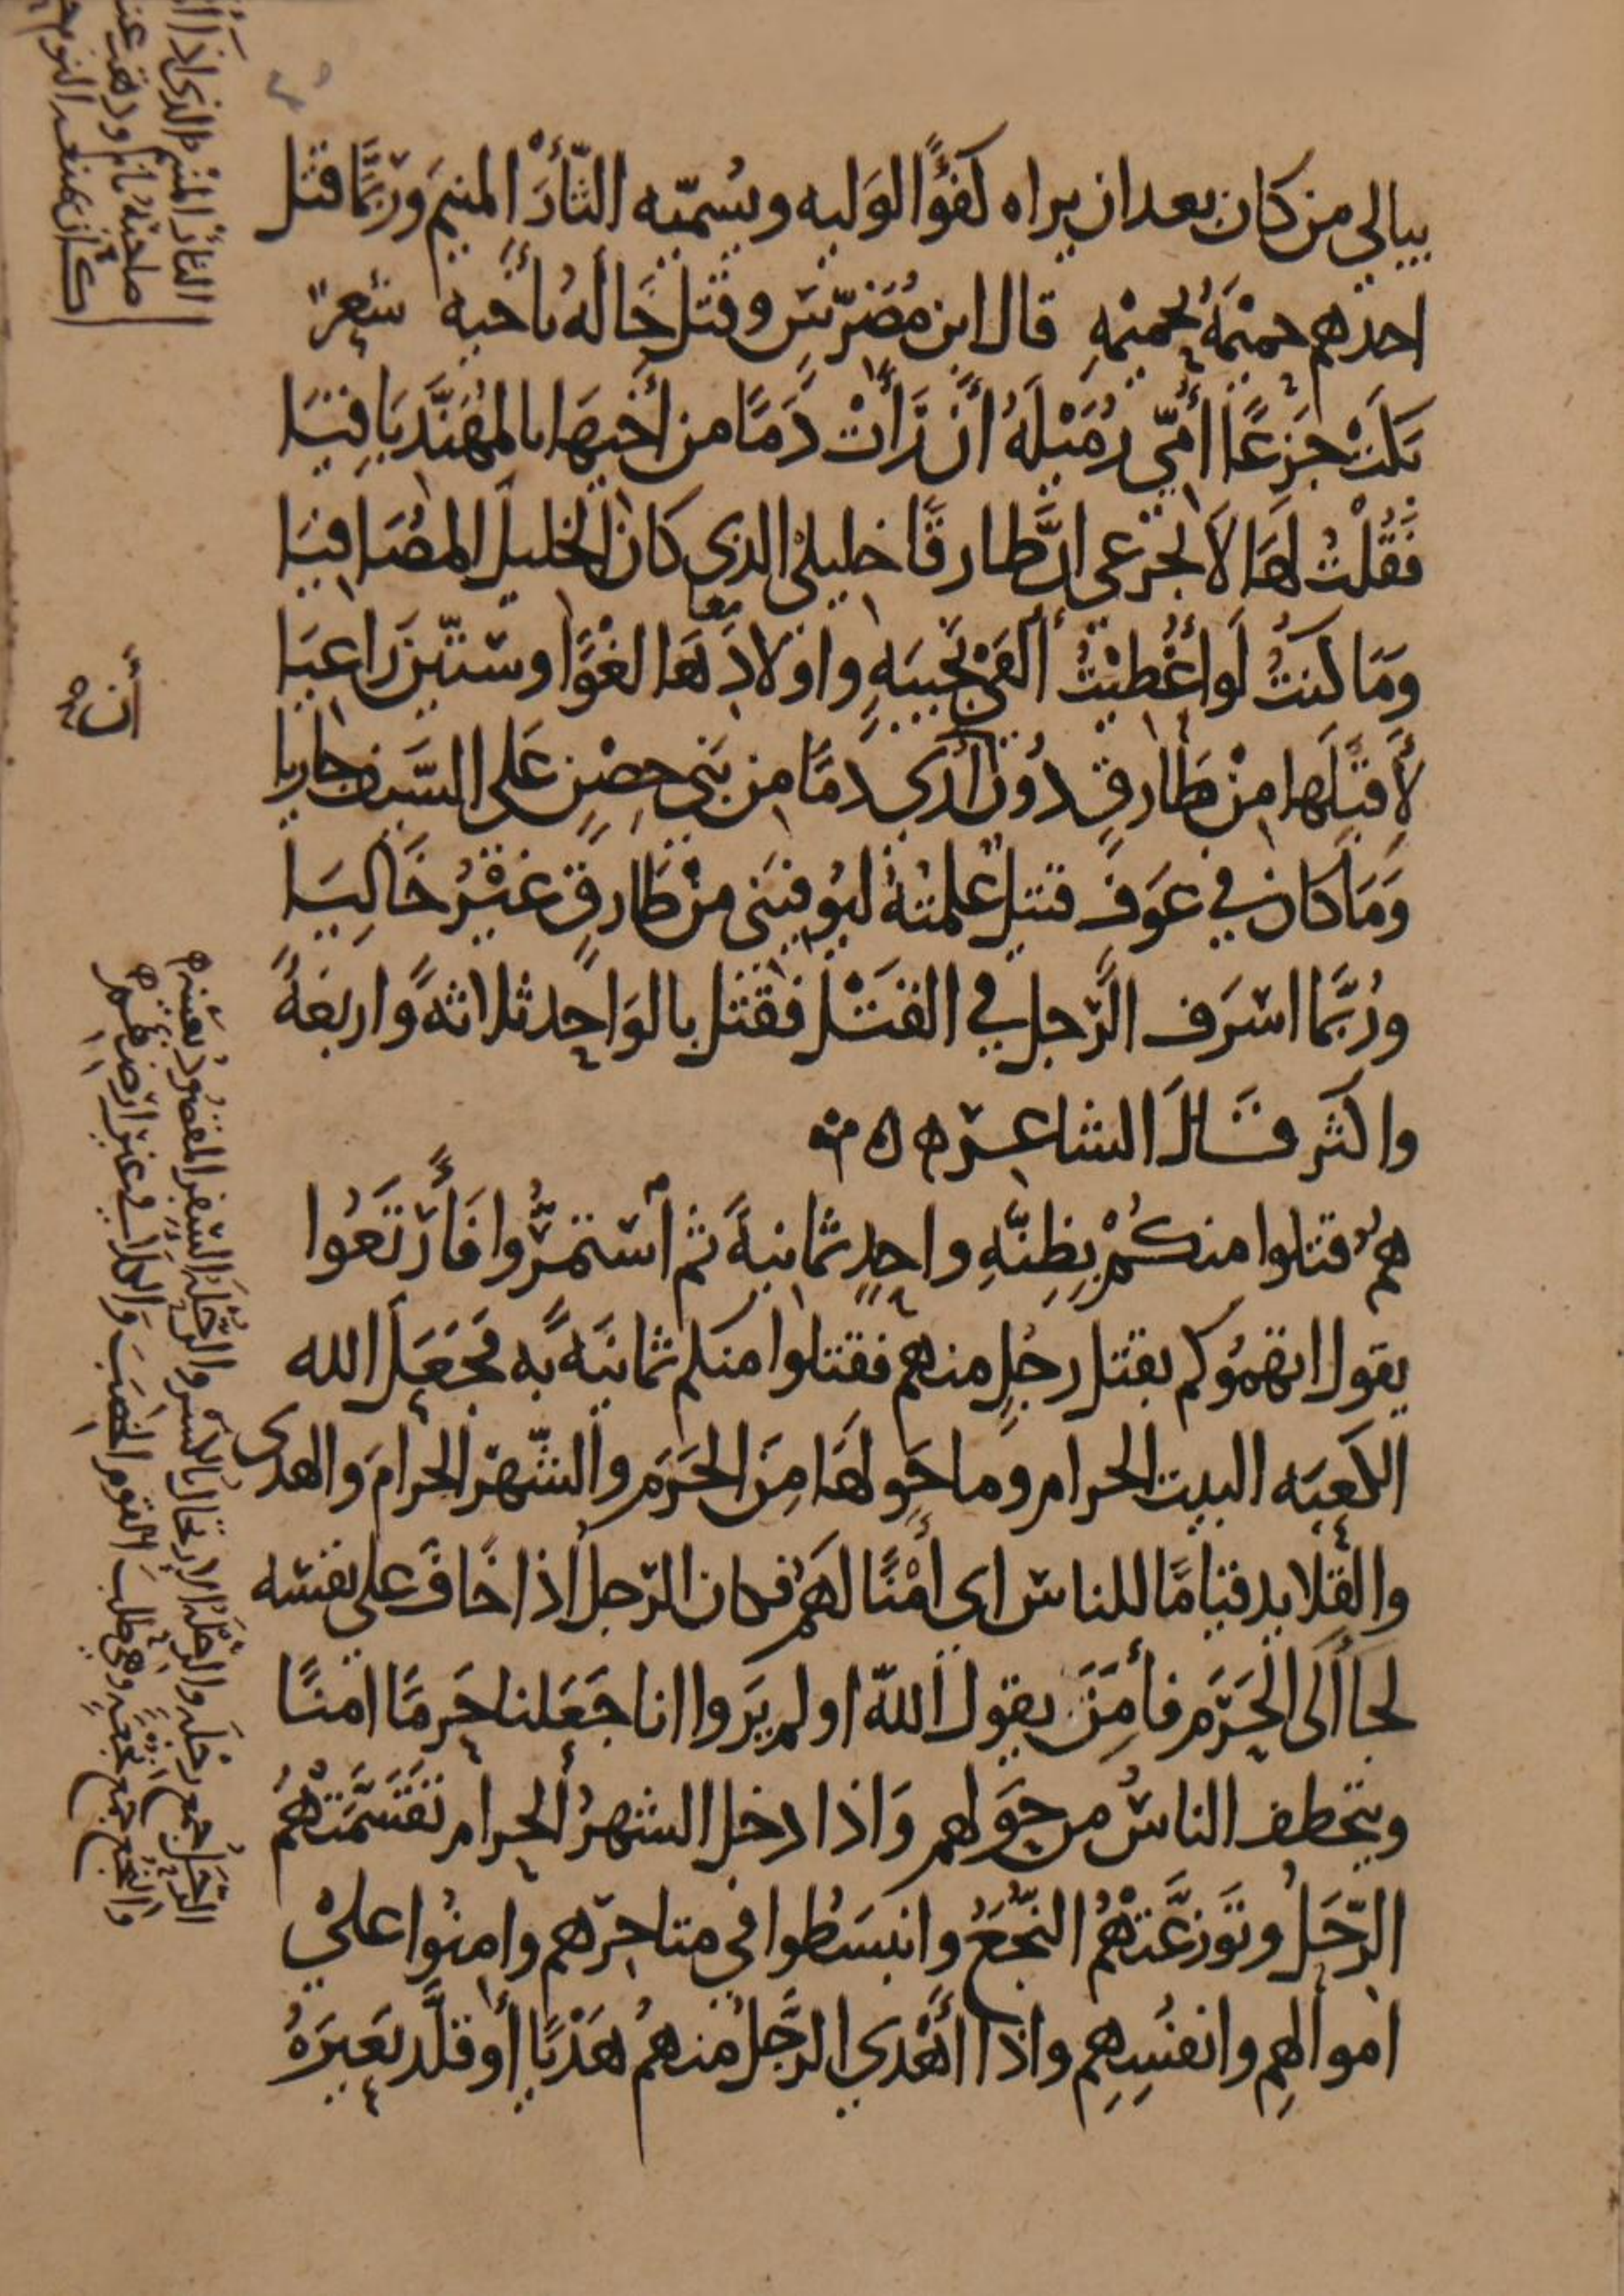 يبالي من كان بعد ان يراه كفؤًا لوليه ويسميّه الثّأرَ المنيم وربّما قتل
احدهم حميمَهُ بحميمْهِ قال ابن مُضَرّسٍ وقتل خاله باخيه شعر
بَكَتْ جزعًا أُمّي رُمَيْلَهُ أن رَأَتْ دَمًا من أَخيهَا بالمهَنَّد بَاقِيَا
فَقُلْتُ لهَا لا تجزعي انَّ طارقًا خليلي الذي كان الخليلَ المصَافيَا
وَمَا كنتُ لو أُعْطيْتُ أَلفَيْ نجيبَهٍ واولادهَا لغوًا وستّين رَاعيَا
لأَقبَلَها منْ طَارقٍ دُونَ أن أرَى دَمًا من بَني حِصْنٍ عَلى السَّيف جاريا
وَمَا كان في عَوفٍ قتيل علمتهُ ليُوفيَني منْ طَارقٍ غَيْرُ خَالِيَا
ورُبَّما اسرَف الرَّجل في القَتْل فقتل بالوَاحد ثلاثهً واربعَةً
واكثر قَالَ الشاعر
همُ قتلوا منكُمْ بِظِنَّهِ واحدٍ ثمانيهً ثم أستمرُّوا فَأَرْتَعُوا
يقول اتهموكم بقتل رجُلٍ منهم فقتلوا منكم ثمانيَهً به فجَعَلَ الله
الكعبَه البيت الحرام وما حَولهَا مِنَ الحَرَم والشّهرَ الحرامَ والهدى
والقلايد قيامًا للناس اى أَمْنًا لهَمُ فكان الرّجل اذا خَافَ على نفسه
لجأ الَى الحَرَم فأَمِنَ يقول اللهّ اولم يَروا انا جَعَلنا حَرمًا امنًا
ويتخطف الناسُ من حَولهم وَاذا دخل الشهرُ الحرام تقَسَّمَتْهُمُ
الرِّحَلُ وتَوزعَّتْهُمُ النُّجَعُ وانبسَطُوا في متاجرهم وامنُوا علىْ
اموالهِم وانفُسِهِم واذا أَهْدي الرَّجلُ منهمُ هَدْيًا أو قلَّد بَعيرَهُ
الثأر المنيم الذى اذا
صاحبُهُ نام
كان يمنعه النوم
الرحَل جمع رحْلَه والرحلَهُ الارتحال بالكسر والرُّحلَهُ السفر المقصودُ بعينه
والنُّجَع جمع نُجعَهٍ وهى طلبَ القوم الخصبَ والكلأ فى غير ارضهم